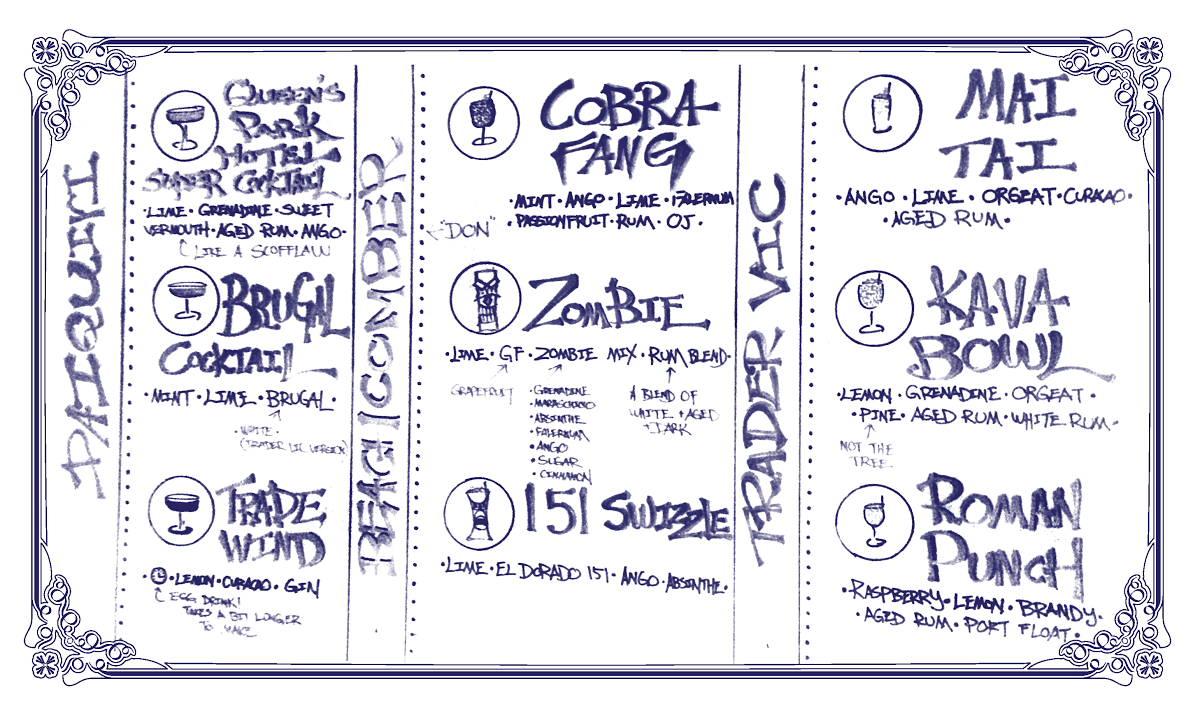 DAIQUIRI
QUEEN'S
PARK
HOTEL
SUPER COCKTAIL
·LIME· GRENADINE ·SWEET
VERMOUTH ·AGED RUM· ANGO·
LIKE A SCOFFLAW
BRUGAL
COCKTAIL
·MINT·LIME·BRUGAL·
·WHITE·
(TRADER VIC VERSION)
TRADE
WIND
·LEMON·CURACAO· GIN
EGG DRINK!
TAKES A BIT LONGER
TO MAKE
BEACHCOMBER
COBRA
FANG
·MINT·ANGO·LIME·FALERNUM
·PASSIONFRUIT·RUM· OJ·
"DON"
ZOMBIE
·LIME· GF ·ZOMBIE MIX·RUM BLEND·
GRAPEFRUIT
·GRENADINE
·MARASCHINO
·ABSINTHE
·FALERNUM
·ANGO
·SUGAR
·CINNAMON
A BLEND OF
WHITE + AGED
+ DARK
151 SWIZZLE
·LIME·EL DORADO 151·ANGO·ABSINTHE·
TRADER VIC
MAI
TAI
·ANGO· LIME· ORGEAT·CURACAO·
AGED RUM·
KAVA
BOWL
·LEMON·GRENADINE·ORGEAT·
·PINE· AGED RUM·WHITE RUM·
NOT THE
TREE
ROMAN
PUNCH
·RASPBERRY·LEMON·BRANDY·
·AGED RUM·PORT FLOAT·